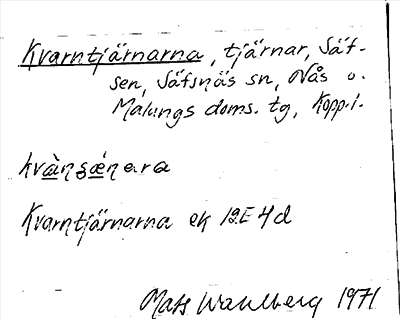 Kvarntjärnarna, tjärnar, Säf-
sen, Säfsnäs sn, Nås o.
Malungs doms. tg, Kopp.l.
Kvarntjärnarna ek 12E 4d
Mats Wahlberg 1971